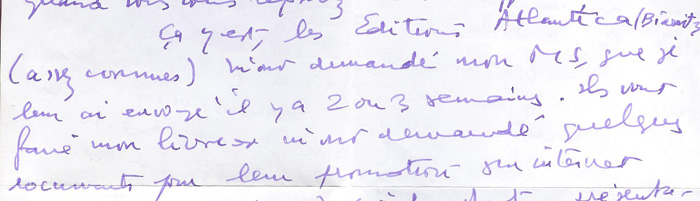 quand vous vous
Ça y est, les Editions Atlantica (Biarritz
(assez connues) m'ont demandé mon MS, que je
leur ai envoyé il y a 2 ou 3 semaines. Ils vont
faire mon livre et m'ont demandé quelques
documents pour leur promotion sur internet
présenta-